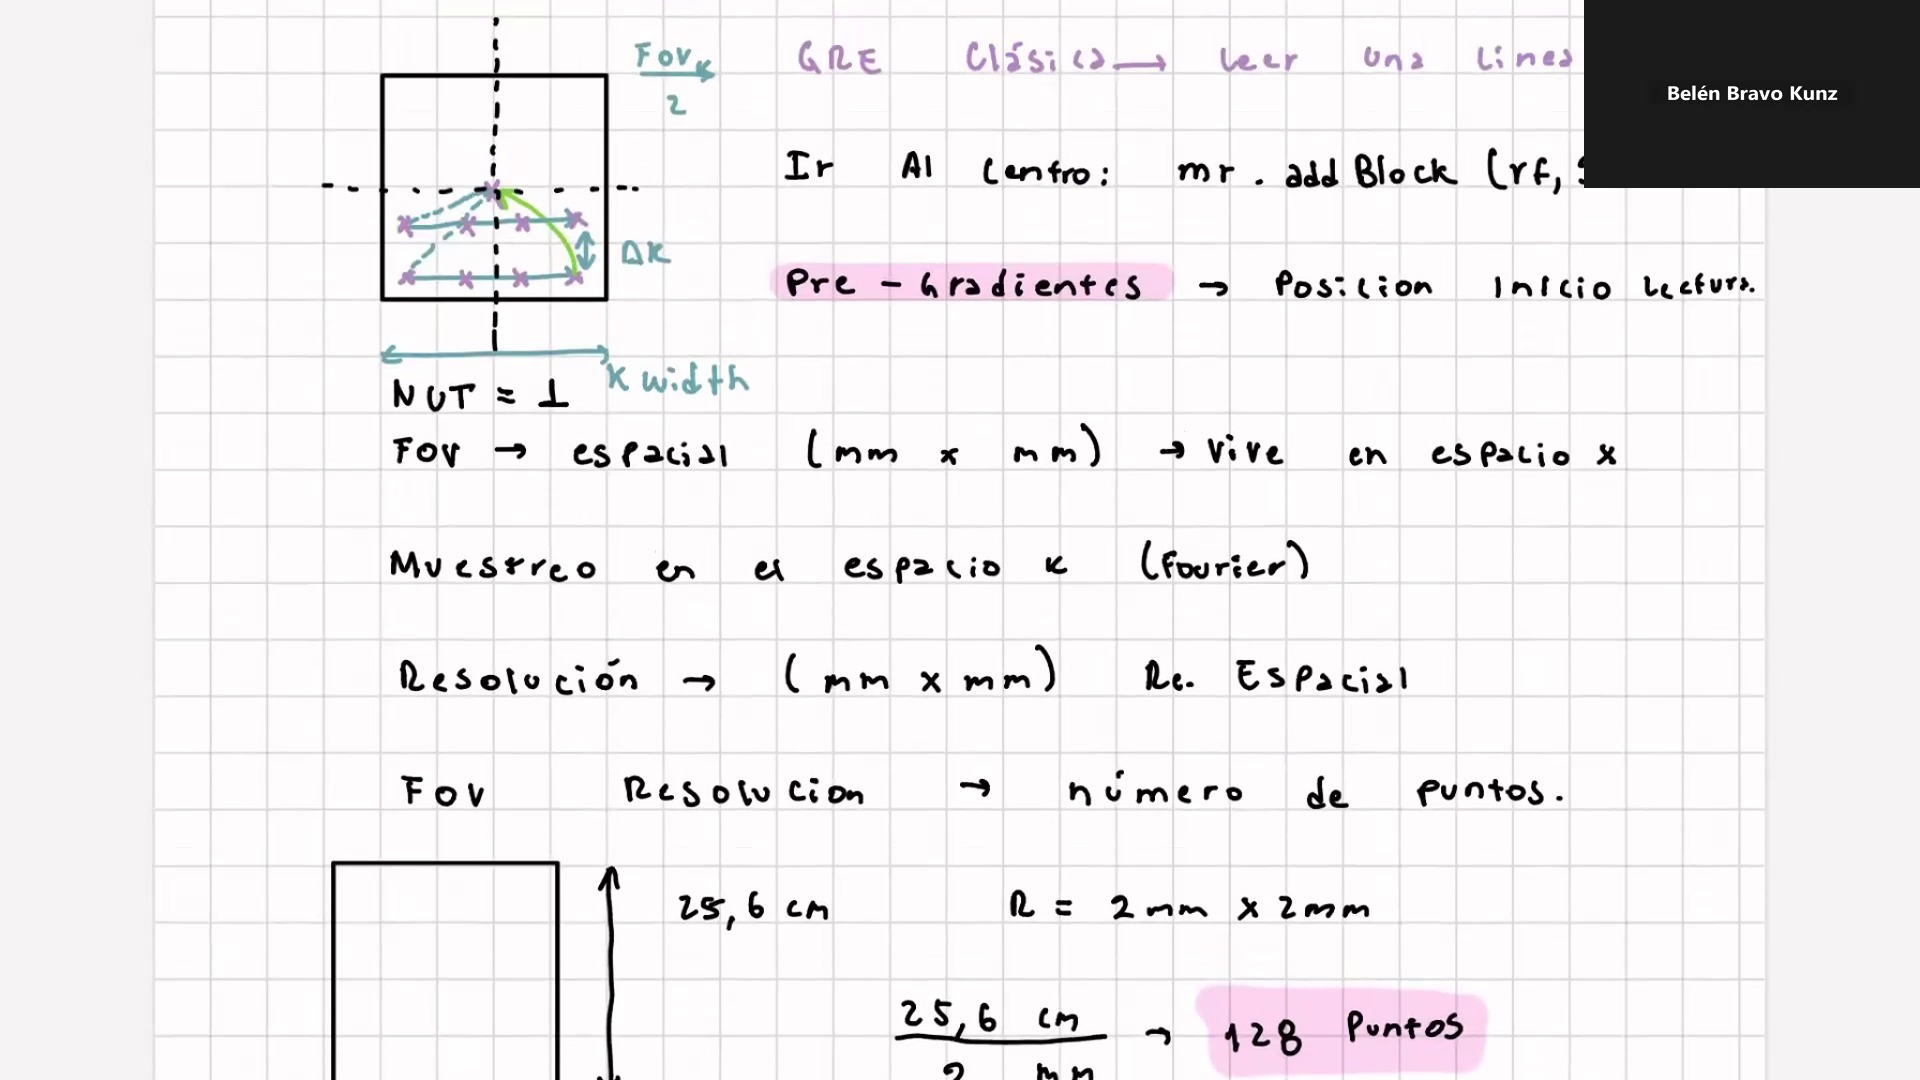 FOVk
2
GRE Clásica → leer una linea
Belén Bravo Kunz
Ir Al Centro: mr. addBlock (rf,
ΔK
Pre - Gradientes → Posicion Inicio Lectura.
K width
NUT = 1
FOV → espacial (mm x mm) → Vive en espacio x
Muestreo en el espacio k (Fourier)
Resolución → (mm x mm) Re. Espacial
FOV Resolucion → número de puntos.
25,6 cm R = 2 mm x 2 mm
25,6 cm → 128 Puntos
2 mm